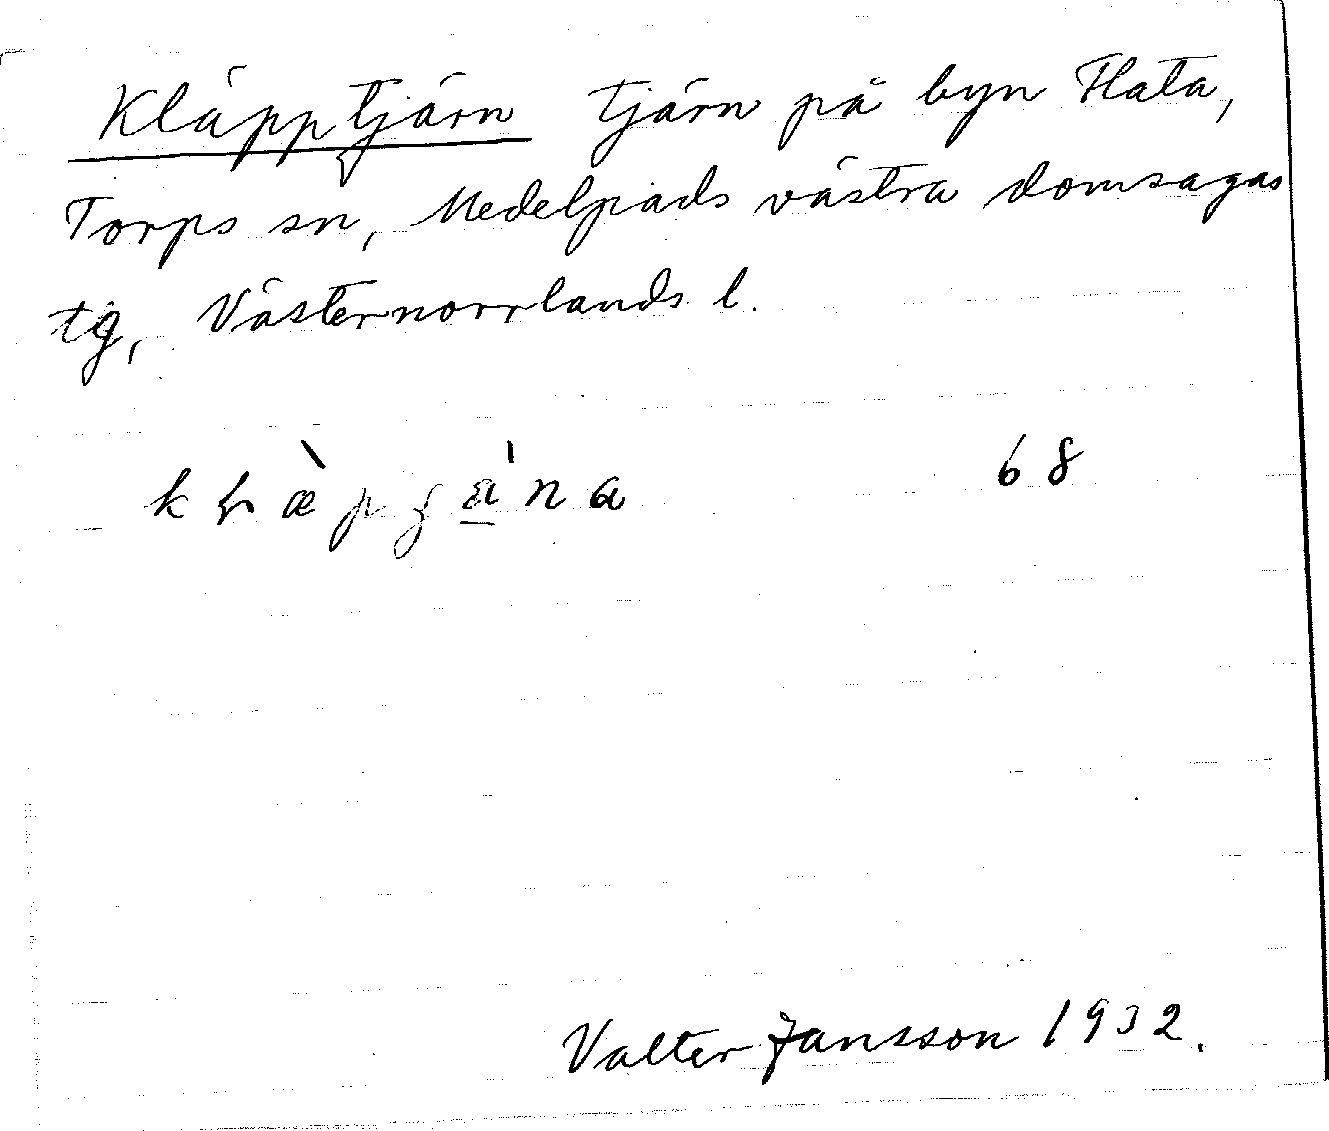 Kläpptjärn tjärn på byn Flata,
Torps sn, Medelpads västra domsagas
tg, Västernorrlands l.
68
Valter Jansson 1932.